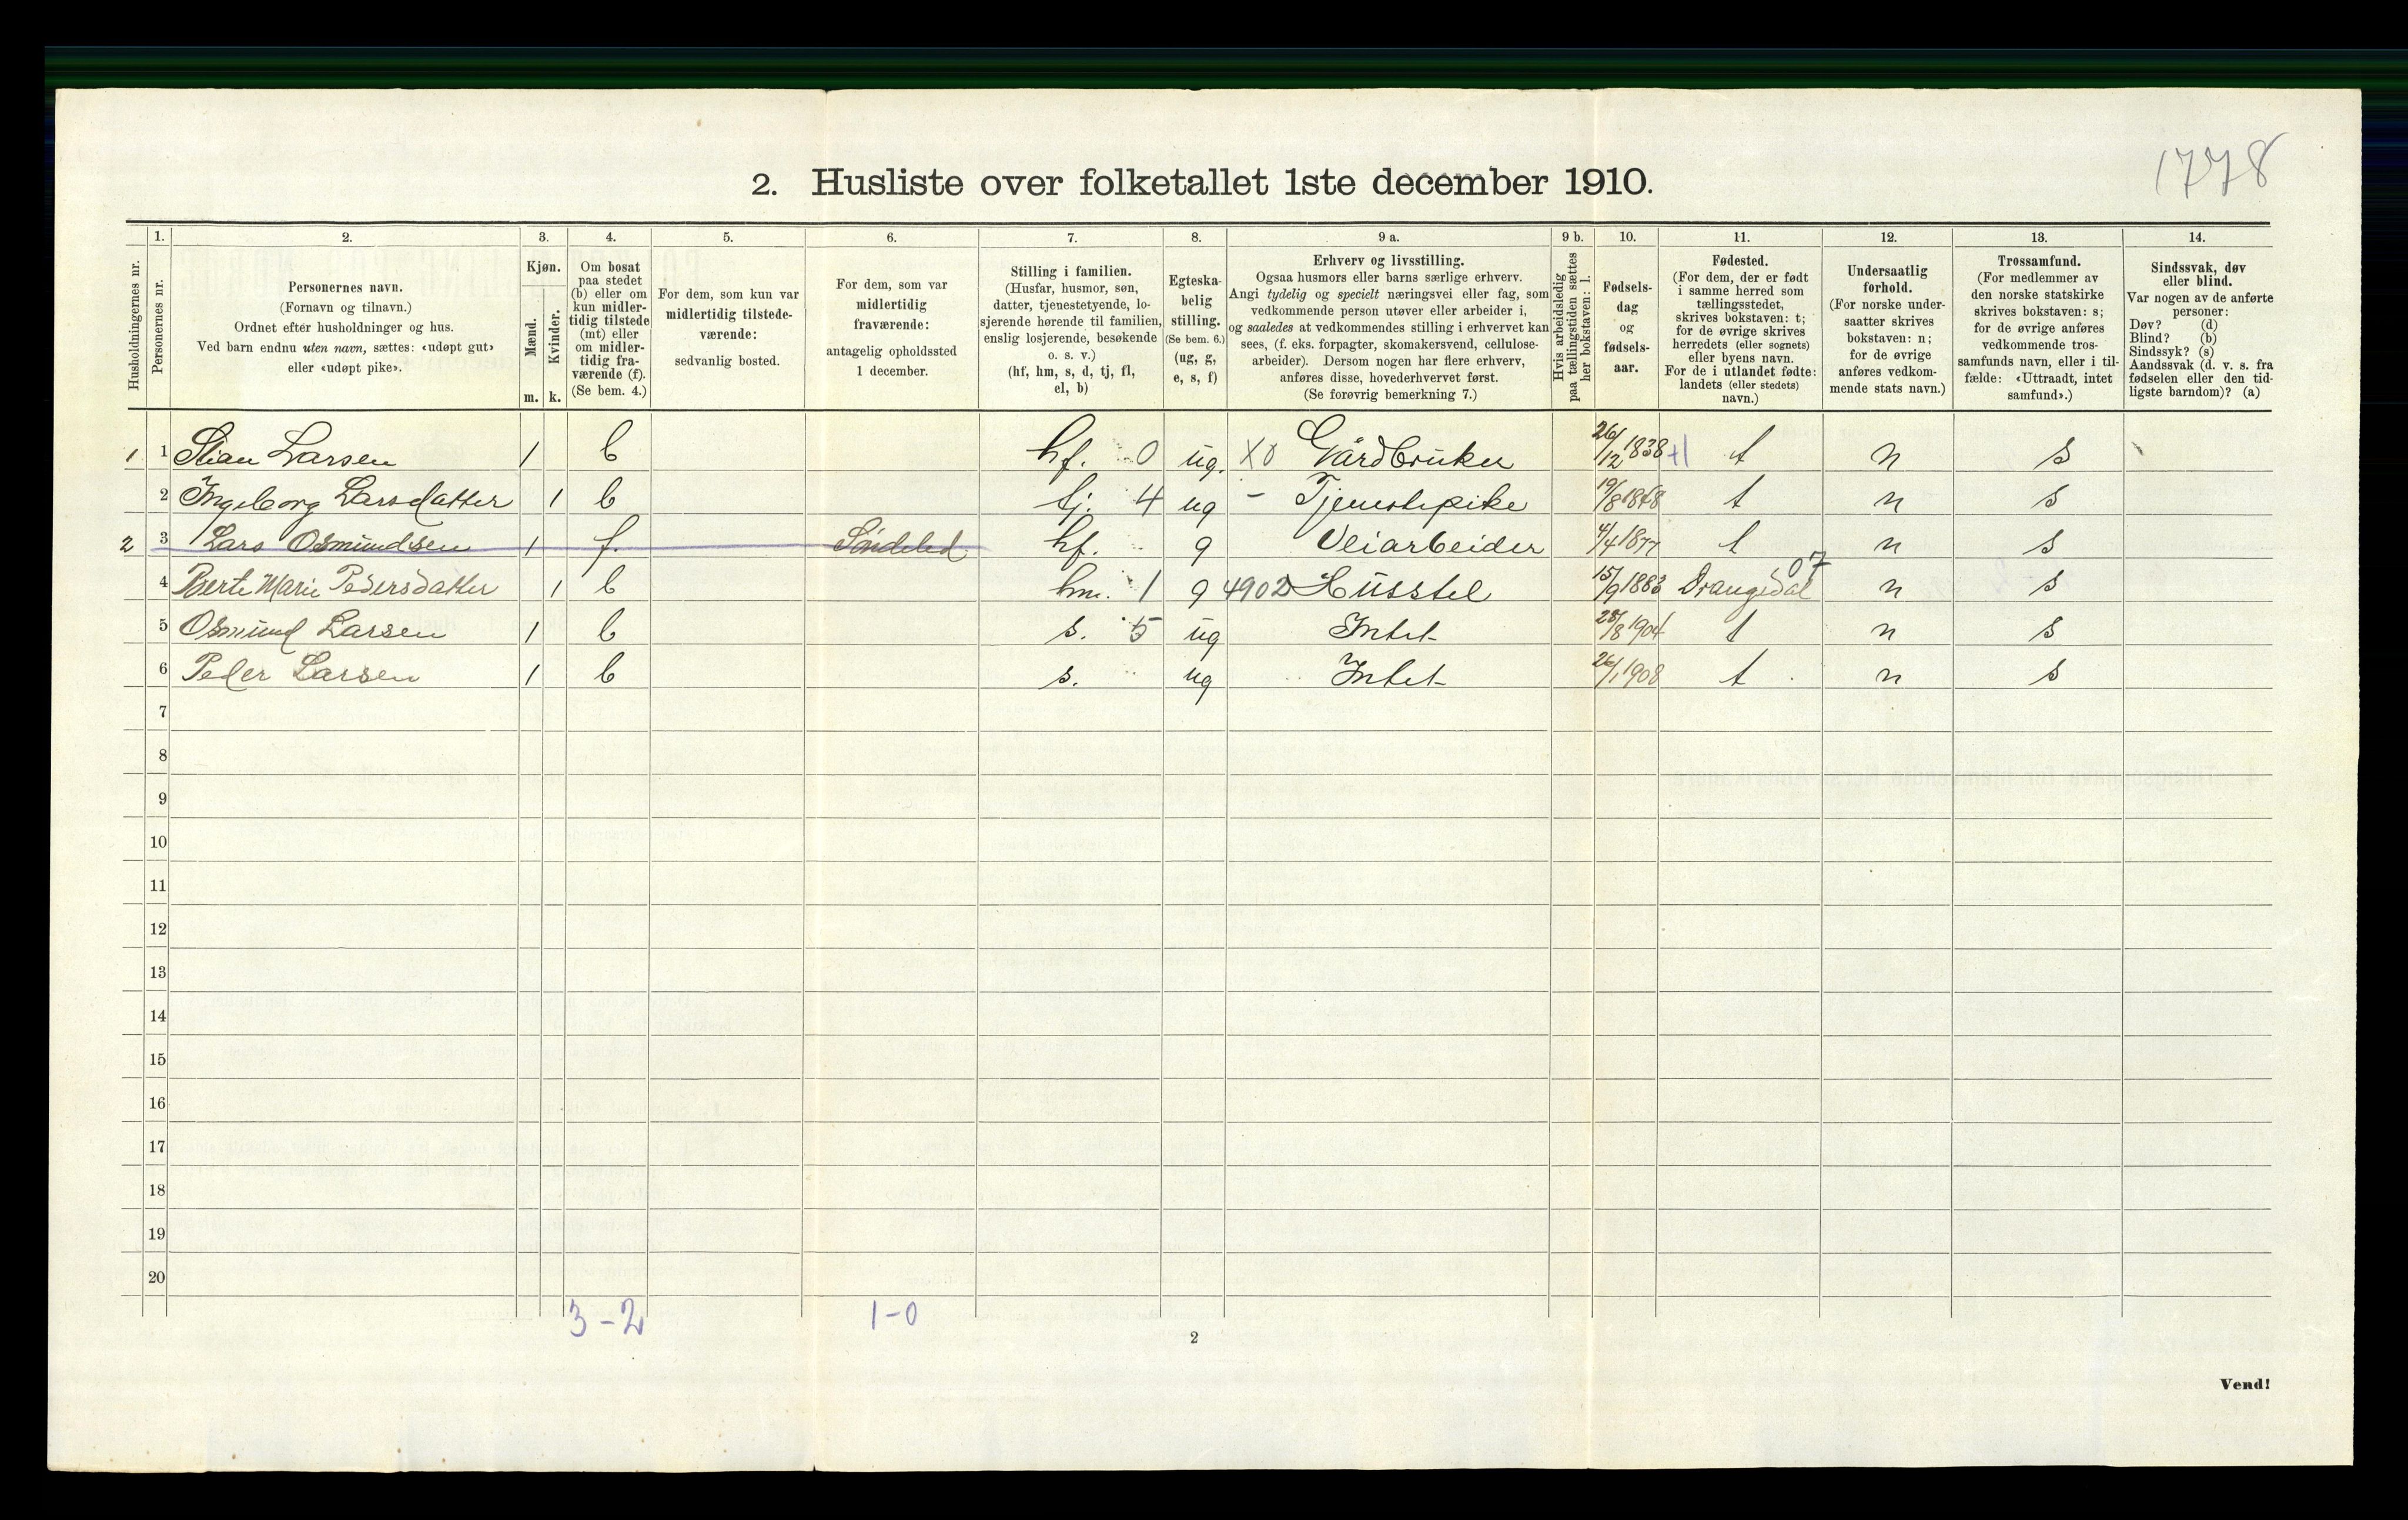 1778
2. Husliste over folketallet 1ste december 1910.
1. 2. 3. 4. 5. 6. 7. 8. 9 a. 9 b. 10. 11. 12. 13. 14.
Husholdningernes nr.
Personernes nr.
Personernes navn.
(Fornavn og tilnavn.)
Ordnet efter husholdninger og hus.
Ved barn endnu uten navn, sættes: «udøpt gut»
eller «udøpt pike».
Kjøn.
Mænd.
Kvinder.
m. k.
Om bosat
paa stedet
(b) eller om
kun midler-
tidig tilstede
(mt) eller
om midler-
tidig fra-
værende (f).
(Se bem. 4.)
For dem, som kun var
midlertidig tilstede-
værende:
sedvanlig bosted.
For dem, som var
midlertidig
fraværende:
antagelig opholdssted
1 december.
Stilling i familien.
(Husfar, husmor, søn,
datter, tjenestetyende, lo-
sjerende hørende til familien,
enslig losjerende, besøkende
o. s. v.)
(hf, hm, s, d, tj, fl,
el, b)
Egteska-
belig
stilling.
(Se bem. 6.)
(ug, g,
e, s, f)
Erhverv og livsstilling.
Ogsaa husmors eller barns særlige erhverv.
Angi tydelig og specielt næringsvei eller fag, som
vedkommende person utøver eller arbeider i,
og saaledes at vedkommendes stilling i erhvervet kan
sees, (f. eks. forpagter, skomakersvend, cellulose-
arbeider). Dersom nogen har flere erhverv,
anføres disse, hovederhvervet først.
(Se forøvrig bemerkning 7.)
Hvis arbeidsledig
paa tællingstiden sættes
her bokstaven: l.
Fødsels-
dag
og
fødsels-
aar.
Fødested.
(For dem, der er født
i samme herred som
tællingsstedet,
skrives bokstaven: t;
for de øvrige skrives
herredets (eller sognets)
eller byens navn.
For de i utlandet fødte:
landets (eller stedets)
navn.)
Undersaatlig
forhold.
(For norske under-
saatter skrives
bokstaven: n;
for de øvrige
anføres vedkom-
mende stats navn.)
Trossamfund.
(For medlemmer av
den norske statskirke
skrives bokstaven: s;
for de øvrige anføres
vedkommende tros-
samfunds navn, eller i til-
fælde: «Uttraadt, intet
samfund».)
Sindssvak, døv
eller blind.
Var nogen av de anførte
personer:
Døv? (d)
Blind? (b)
Sindssyk? (s)
Aandssvak (d. v. s. fra
fødselen eller den tid-
ligste barndom)? (a)
1 1 Stian Larsen 1 b hf. 0 ug. X0 Gårdbruker 26/12 1838 +1 t n s
2 Ingeborg Larsdatter 1 b tj. 4 ug - Tjenestepike 19/8 1868 t n s
2 3 Lars Osmundsen 1 f. Söndeled hf. g Veiarbeider 4/4 1877 t n s
4 Berte Marie Pedersdatter 1 b hm. 1 g 4902 Husstel 15/9 1883 Drangedal 07 n s
5 Osmund Larsen 1 b s. 5 ug Intet 28/8 1904 t n s
6 Peder Larsen 1 b s. ug Intet 26/1 1908 t n s
7
8
9
10
11
12
13
14
15
16
17
18
19
20
3-2 1-0
2
Vend!